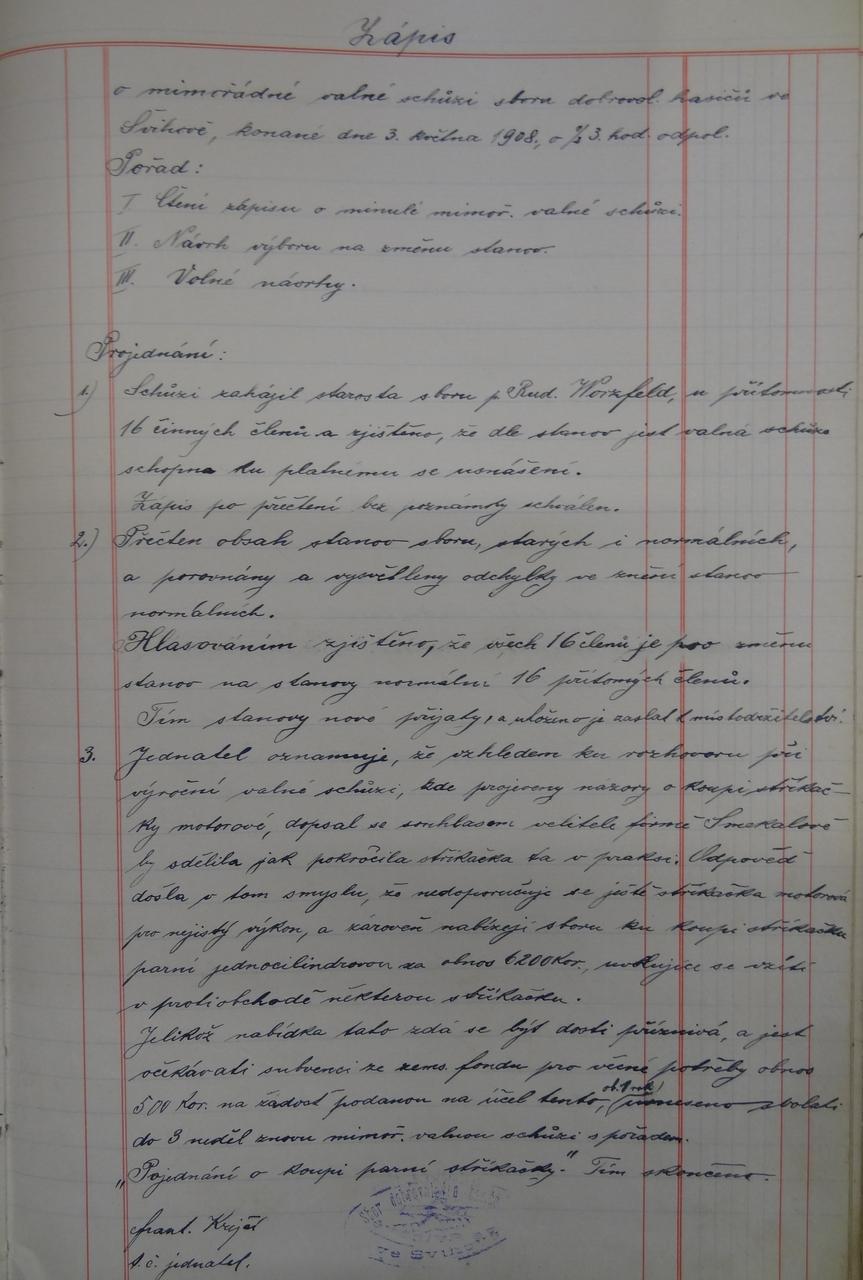 Zápis
o mimořádné valné schůzi sboru dobrovol. hasičů ve
Švihově, konané dne 3. května 1908, o ½3. hod. odpol.
Pořad:
I Čtení zápisu o minulé mimoř. valné schůzi.
II. Návrh výboru na změnu stanov.
III. Volné návrhy.
Projednání:
1.) Schůzi zahájil starosta sboru p. Rud. Worzfeld, u přítomnosti
16 činných členů a zjištěno, že dle stanov jest valná schůze
schopna ku platnému se usnášení.
Zápis po přečtení bez poznámky schválen.
2.) Přečten obsah stanov sboru, starých i normálních,
a porovnány a vysvětleny odchylky ve znění stanov
normálních.
Hlasováním zjištěno, že všech 16 členů je pro změnu
stanov na stanovy normální 16 přítomých členů.
Tím stanovy nové přijaty, a uloženo je zaslat k místodržitelství.
3. Jednatel oznamuje, že vzhledem ku rozhovoru při
výroční valné schůzi, kde projeveny názory o koupi stříkač-
ky motorové, dopsal se souhlasem velitele firmě Smekalově
by sdělila jak pokročila stříkačka ta v praksi. Odpověď
došla v tom smyslu, že nedoporučuje se ještě stříkačka motorová
pro nejistý výkon, a zároveň nabízejí sboru ku koupi stříkačku
parní jednocilindrovou za obnos 6200 Kor., uvolujíce se vzíti
v protiobchodě některou stříkačku.
Jelikož nabídka tato zdá se být dosti příznivá, a jest
očekávati subvenci ze zems. fondu pro věcné potřeby obnos
500 Kor. na žádost podanou na účel tento, (usneseno svolati
do 3 neděl znovu mimoř. valnou schůzi s pořadem.
"Pojednání o koupi parní stříkačky." Tím skončeno.
Frant. Krejčí
t. č. jednatel.